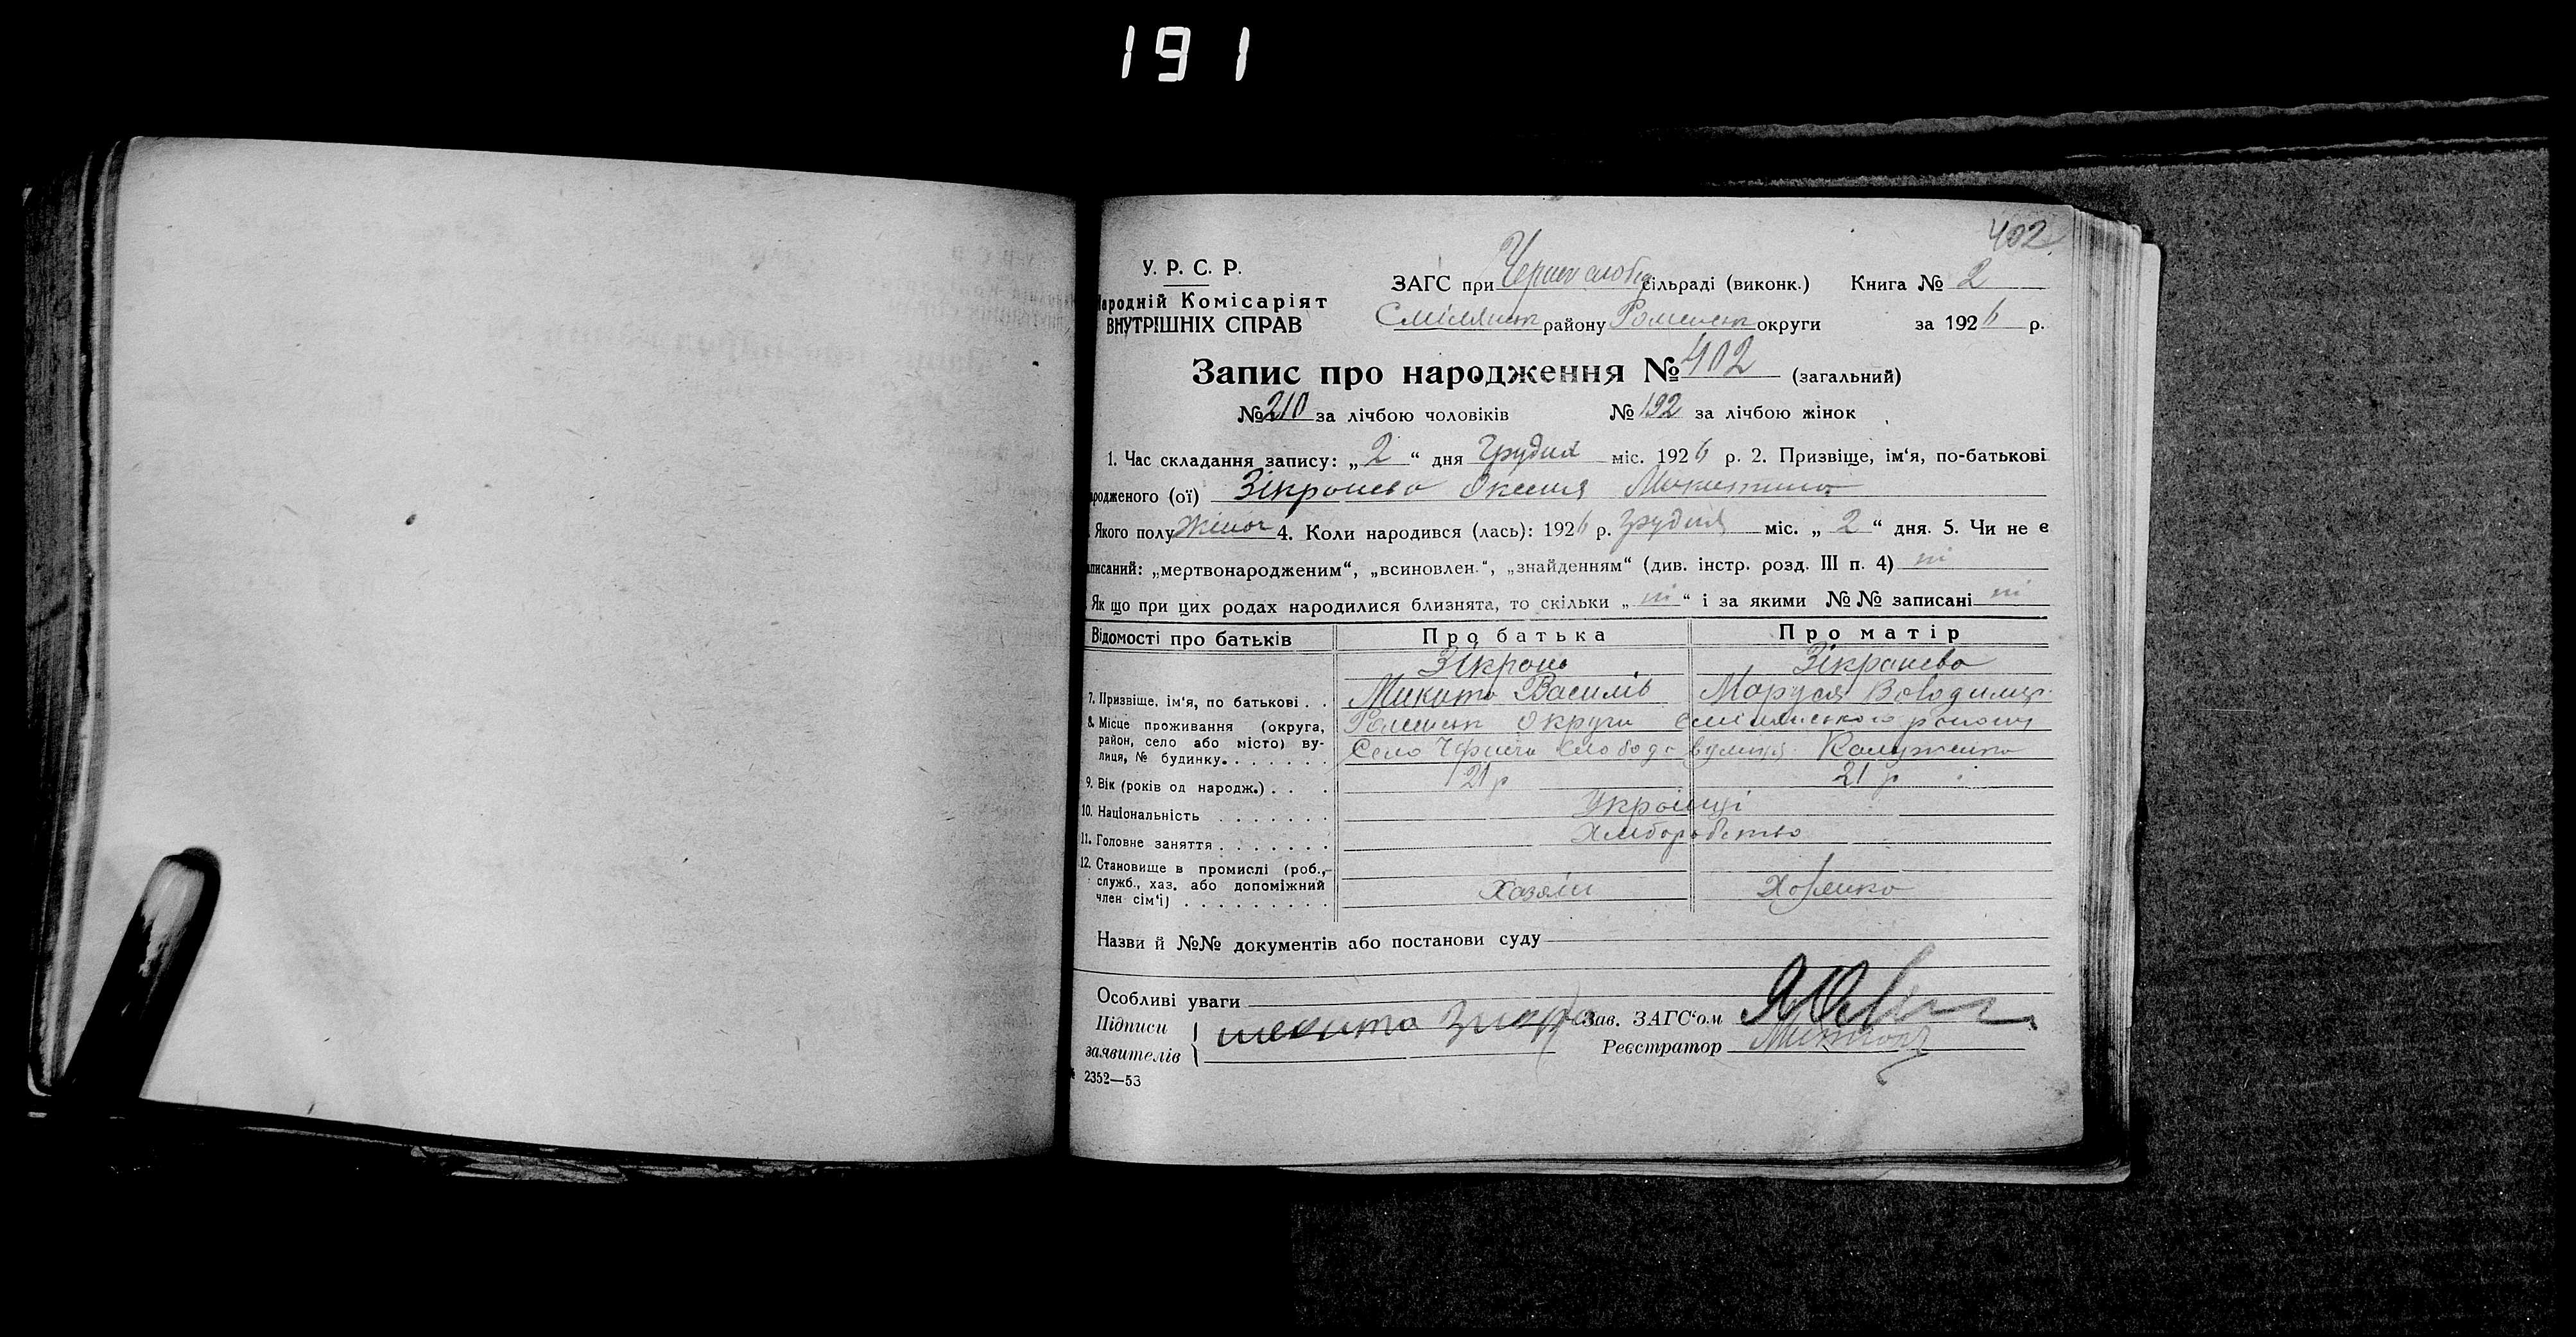 191
402
У. Р. С. Р.
Народній Комісаріят
ВНУТРІШНІХ СПРАВ
ЗАГС при сільраді (виконк.) Книга № 2
Смілянськ району Роменськ округи за 1926 р.
Запис про народження № 402 (загальний)
№ 210 за лічбою чоловіків № 192 за лічбою жінок
1. Час складання запису: „ 2 “ дня Грудня міс. 1926 р. 2. Призвіще, ім‘я, по-батькові
родженого (ої) Зікранева Оксеня Микитина
Якого полу Жіноч 4. Коли народився (лась): 1926 р. грудня міс. „ 2 “ дня. 5. Чи не є
аписаний: „мертвонародженим“, „всиновлен.“, „знайденням“ (див. інстр. розд. III п. 4) ні
Як що при цих родах народилися близнята, то скільки „ ні “ і за якими №№ записані ні
Відомості про батьків Про батька Про матір
Зікрань Зікранева
7. Призвіще, ім‘я, по батькові . . Микита Василів Маруся Володимир.
8. Місце проживання (округа, Роменськ округи смілянського району
район, село або місто) ву-
лиця, № будинку. . . . . . . Село Чернеча Слобода вулиця
9. Вік (років од народж.) . . . 21 р 21 р
10. Національність . . . . . . . Українці
11. Головне заняття . . . . . . . Хліборобство
12. Становище в промислі (роб.,
служб., хаз. або допоміжний
член сім‘ї) . . . . . . . . . Хазяїн Хазяйка
Назви й №№ документів або постанови суду
Особливі уваги
Підписи микита Зікра Зав. ЗАГС‘ом
заявителів Реєстратор
2352—53